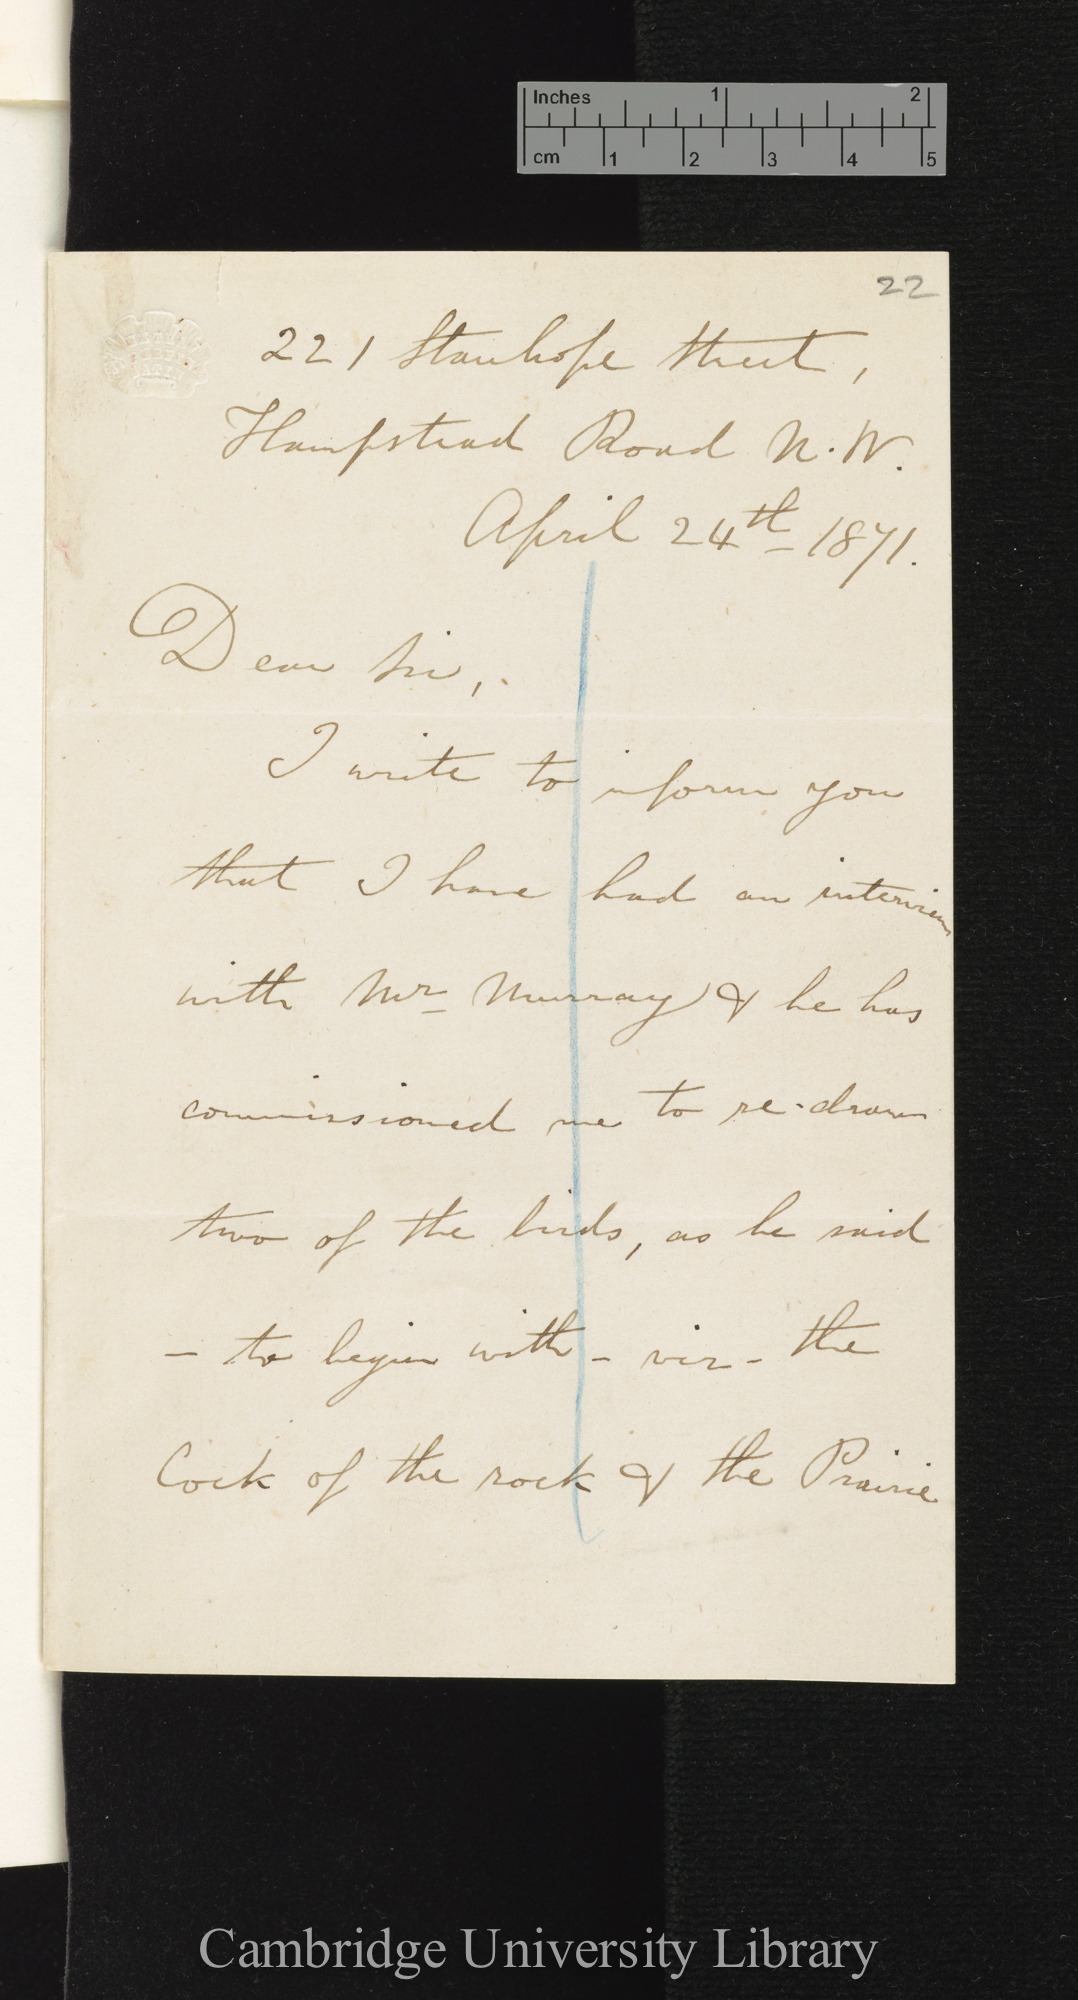 Inches 1 2
cm 1 2 3 4 5
22
221 Stanhope Street,
Hampstead Road N.W.
April 24th 1871.
Dear Sir,
I write to inform you
that I have had an interview
with Mr Murray & he has
commissioned me to re-draw
two of the birds, as he said
- to begin with - viz - the
Cock of the rock & the Prairie
Cambridge University Library